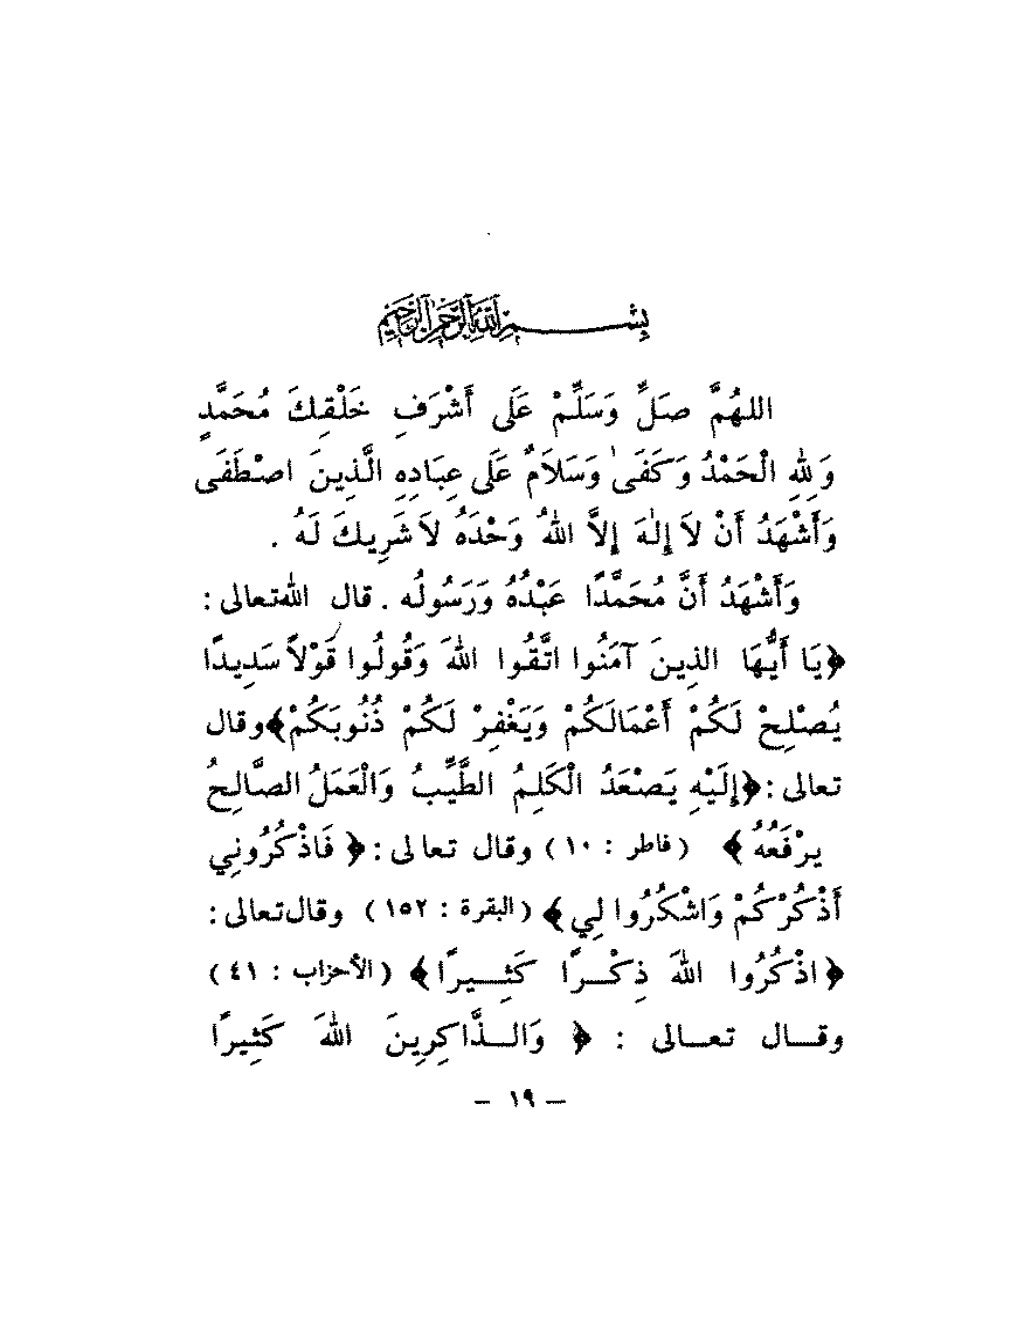 بِسْمِ اللهِ الرَّحْمٰنِ الرَّحِيمِ
اللهُمَّ صَلِّ وَسَلِّمْ عَلَى أَشْرَفِ خَلْقِكَ مُحَمَّدٍ
وَلِلهِ الْحَمْدُ وَكَفَىٰ وَسَلاَمٌ عَلَى عِبَادِهِ الَّذِينَ اصْطَفَى
وَأَشْهَدُ أَنْ لاَ إِلٰهَ إِلاَّ اللهُ وَحْدَهُ لاَ شَرِيكَ لَهُ .
وَأَشْهَدُ أَنَّ مُحَمَّدًا عَبْدُهُ وَرَسُولُه . قال الله تعالى :
﴿يَا أَيُّهَا الذِينَ آمَنُوا اتَّقُوا اللهَ وَقُولُوا قَوْلاً سَدِيدًا
يُصْلِحْ لَكُمْ أَعْمَالَكُمْ وَيَغْفِرْ لَكُمْ ذُنُوبَكُمْ﴾ وقال
تعالى : ﴿إِلَيْهِ يَصْعَدُ الْكَلِمُ الطَّيِّبُ وَالْعَمَلُ الصَّالِحُ
يرْفَعُهُ﴾ ( فاطر : ١٠ ) وقال تعالى : ﴿ فَاذْكُرُونِي
أَذْكُرْكُمْ وَاشْكُرُوا لِي ﴾ ( البقرة : ١٥٢ ) وقال تعالى :
﴿ اذْكُرُوا اللهَ ذِكْـــرًا كَثِــــيرًا﴾ ( الأحزاب : ٤١ )
وقـــال تعـــالى : ﴿ وَالـــذَّاكِرِينَ اللهَ كَثِيرًا
– ١٩ –